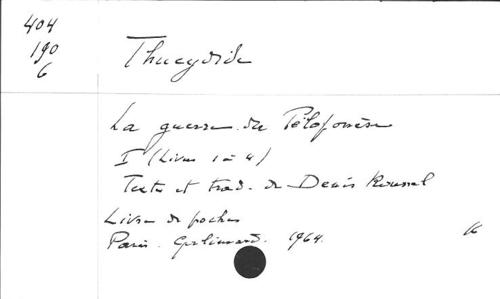 404
190
6
Thucydide
La guerre du Péloponnèse
I (Livres 1 à 4)
Texte et trad. de Denis Roussel
Livre de poche
Paris. Gallimard. 1964.
16